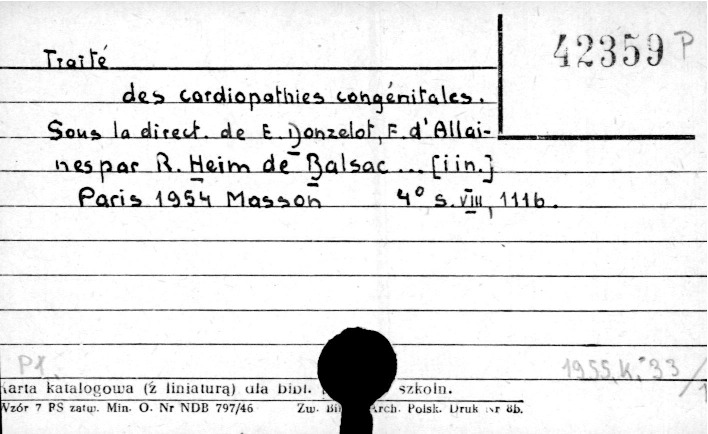 42359 P
Traité
des cardiopathies congénitales.
Sous la direct. de E. Donzelot, F. d'Allai-
nes par R. Heim de Balsac ... [i in.]
Paris 1954 Masson 4° s. VIII, 1116.
Pł.
1955.K. 33/1
Karta katalogowa (z liniaturą) dla bibl. szkoln.
Wzór 7 PS zatw. Min. O. Nr NDB 797/46 Zw. Bi Arch. Polsk. Druk Nr 8b.